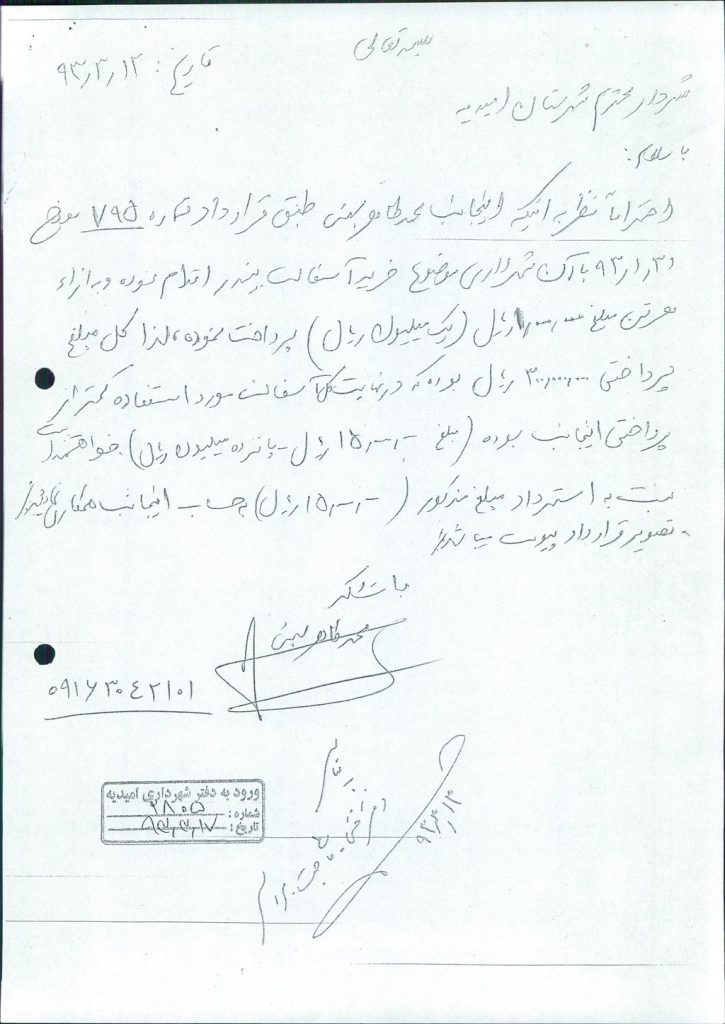 بسمه تعالی
تاریخ: ۹۳/۳/۱۲
شهردار محترم شهرستان امیدیه
با سلام:
احتراماً نظر به اینکه اینجانب محمد طاهر بهبهنی طبق قرارداد شماره ۷۹۵ مورخ
با آن شهرداری موضوع خرید آسفالت بیندر اقدام نموده و به ازاء
هر تن مبلغ ۱/۰۰۰/۰۰۰ ریال (یک میلیون ریال) پرداخت نموده، لذا کل مبلغ
پرداختی ۳۰/۰۰۰/۰۰۰ ریال بوده که در نهایت کل آسفالت مورد استفاده کمتر از
پرداختی اینجانب بوده (مبلغ ۱۵/۰۰۰/۰۰۰ ریال - پانزده میلیون ریال) خواهشمند است
نسبت به استرداد مبلغ مذکور (۱۵/۰۰۰/۰۰۰ ریال) به حساب اینجانب همکاری نمائید.
- تصویر قرارداد پیوست می باشد.
با تشکر
محمد طاهر
۰۹۱۶۳۰۴۲۱۰۱
ورود به دفتر شهرداری امیدیه
شماره: ۲۸۰۵
تاریخ: ۹۳/۳/۱۷